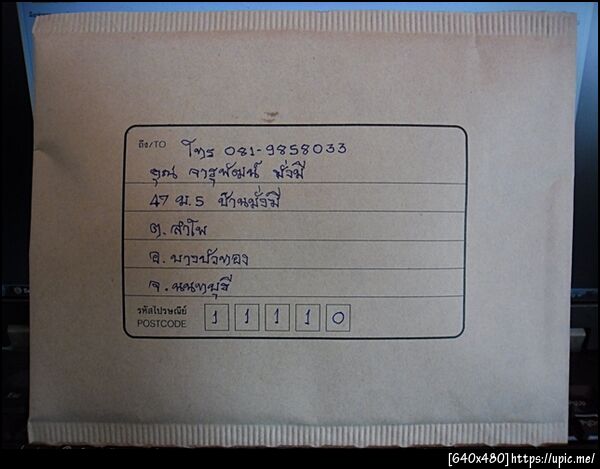 ถึง/TO โทร 081-9858033
คุณ จารุพัฒน์ มั่งมี
47 ม.5 บ้านมั่งมี
ต.ลำโพ
อ.บางบัวทอง
จ.นนทบุรี
รหัสไปรษณีย์
POSTCODE 1 1 1 1 0
[640x480]https://upic.me/